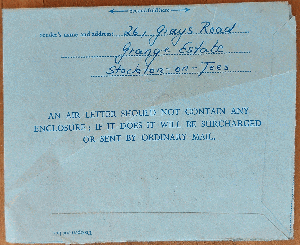 Sender's name and address: 261 Grays Road
Grange Estate
Stockton-on-Tees
AN AIR LETTER SHOULD NOT CONTAIN ANY
ENCLOSURE; IF IT DOES IT WILL BE SURCHARGED
OR SENT BY ORDINARY MAIL.